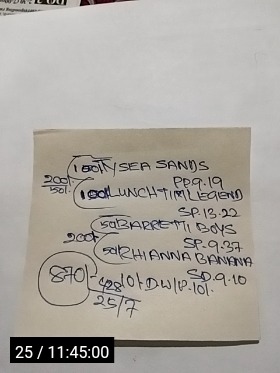 100/- TYSEA SANDS
200/- PD9.19
50/- 100/- LUNCHTIMLEGEND
SP.13.22
50/- BARRETTI BOYS
200/- SP.9.37
50/- RHIANNA BANANA
870/- SP.9.10
428 10/- D.W/P.10/-
25/7
25 / 11:45:00